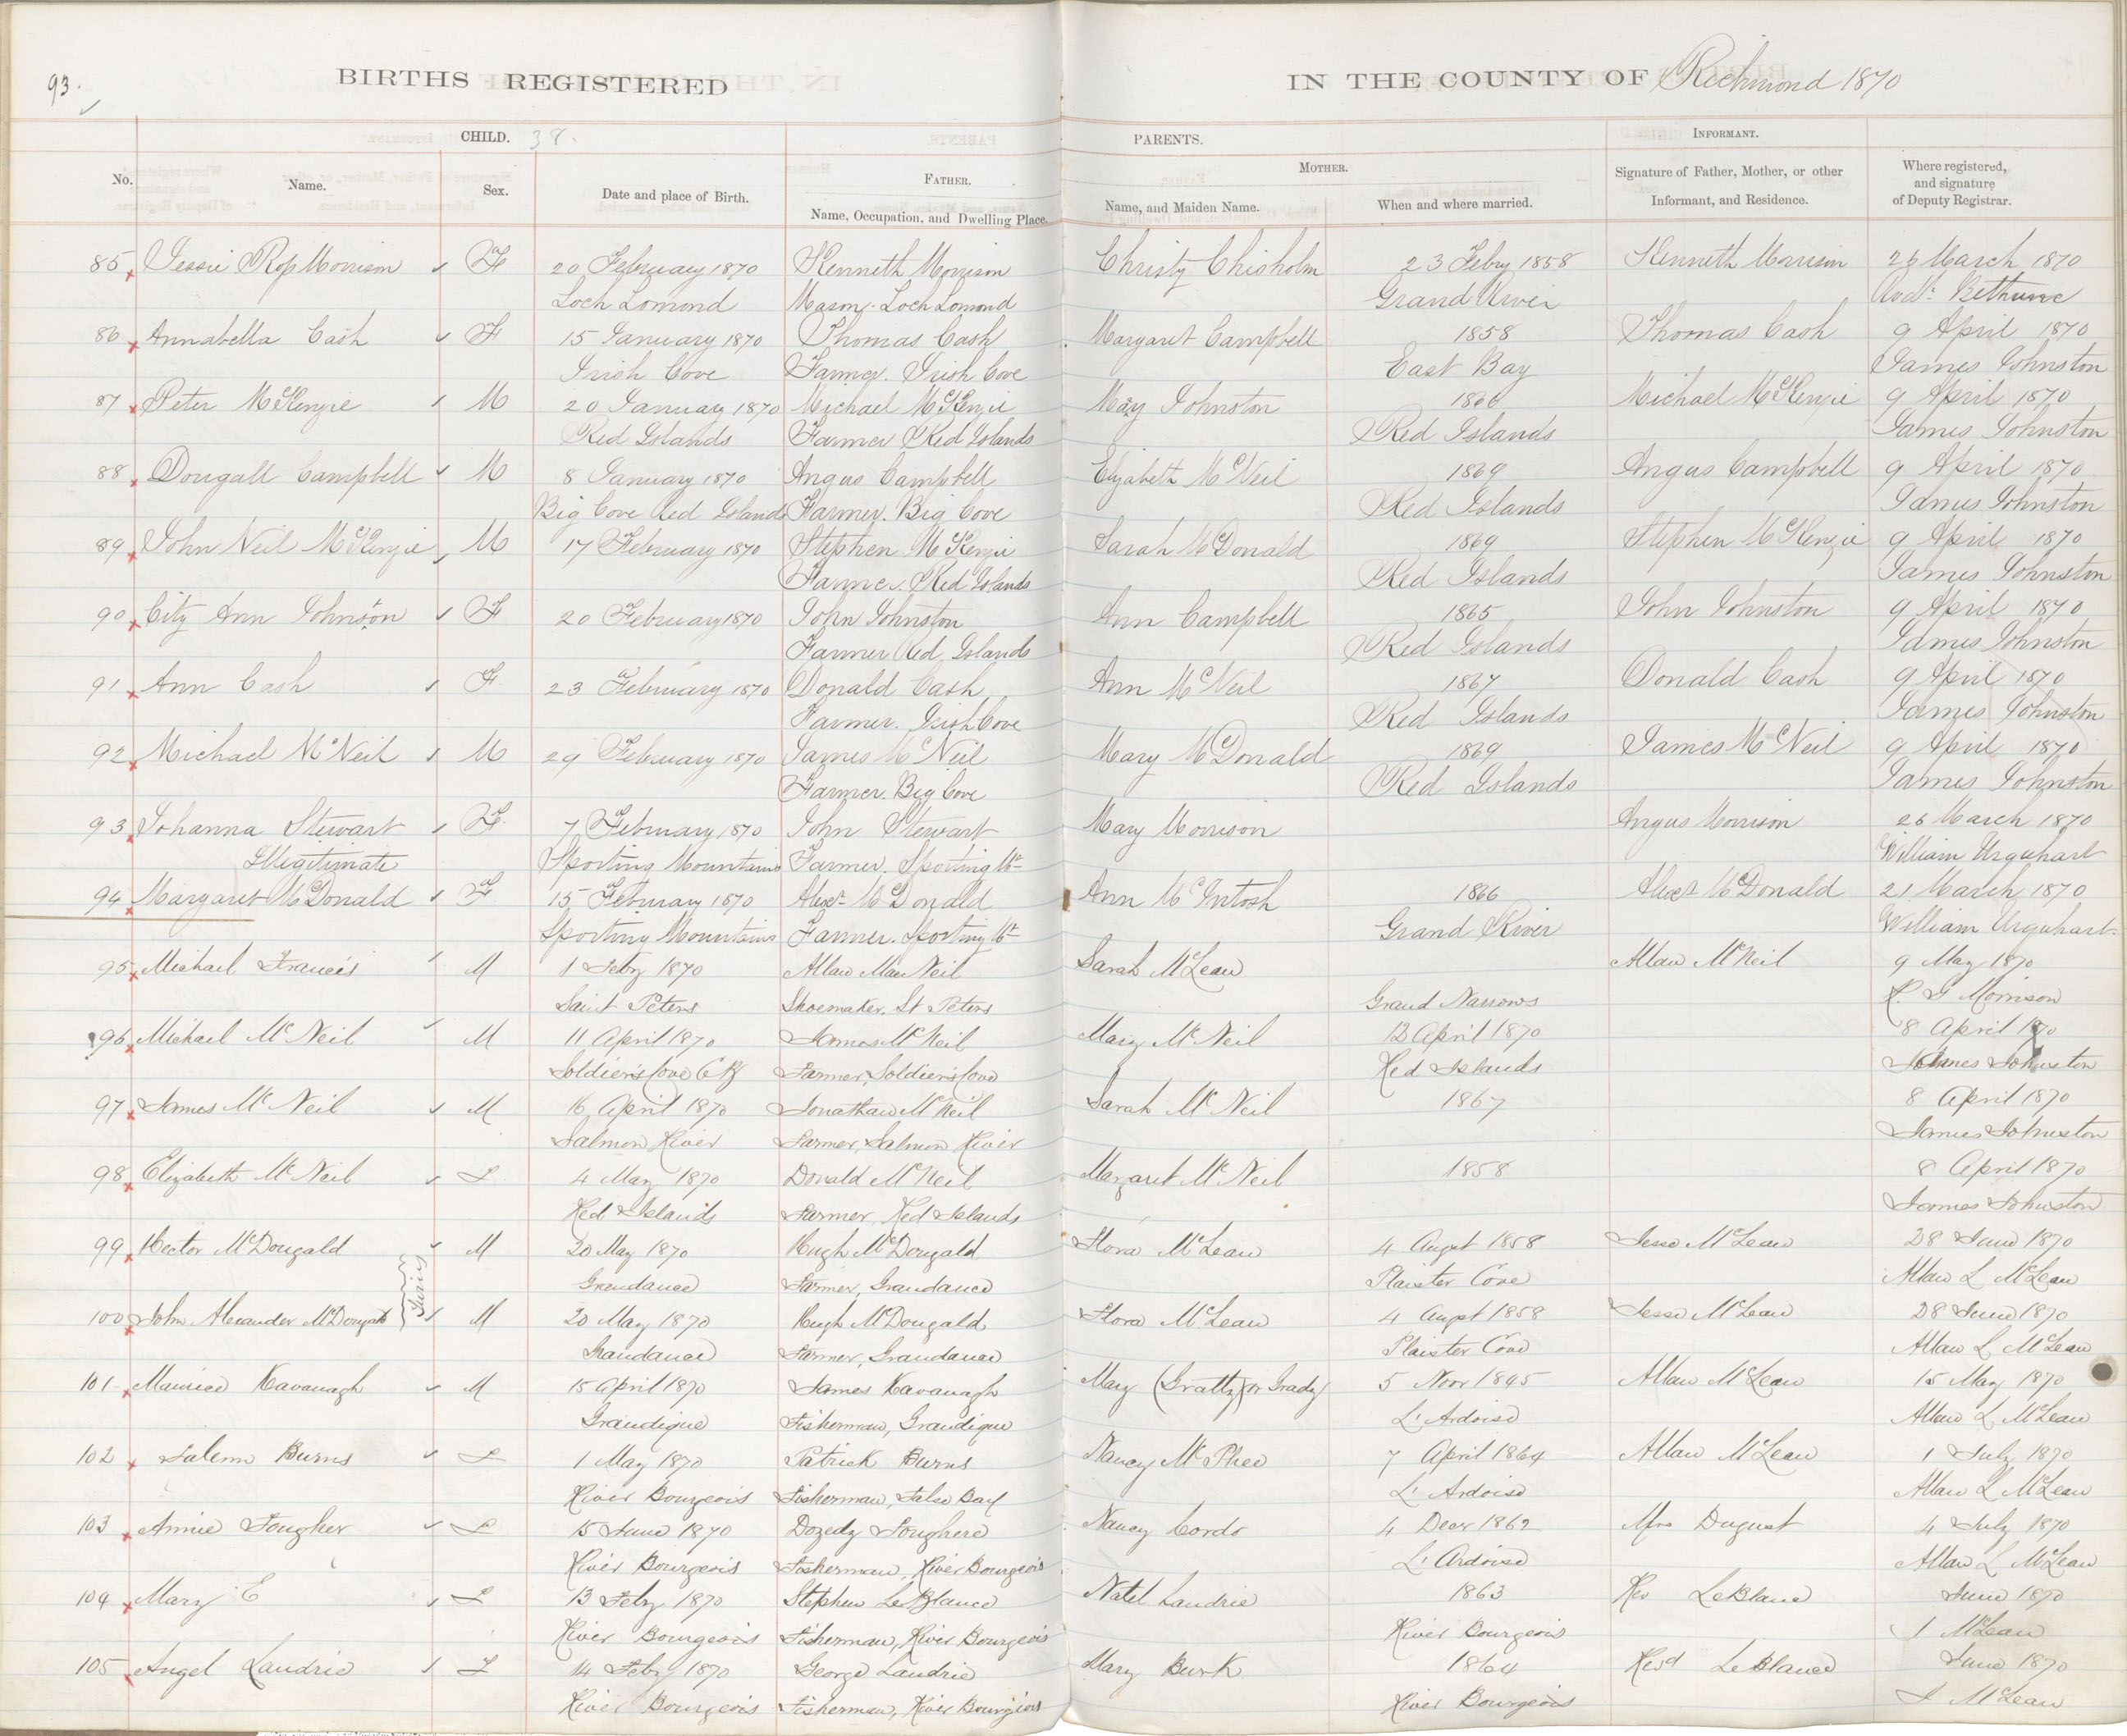 93.
BIRTHS REGISTERED IN THE COUNTY OF Richmond 1870
CHILD. 38. PARENTS. INFORMANT.
MOTHER.
No. Name. Sex. Date and place of Birth. FATHER. Name, and Maiden Name. When and where married. Signature of Father, Mother, or other Where registered, and signature
Name, Occupation, and Dwelling Place. Informant, and Residence. of Deputy Registrar.
85 Jessie Ross Morrison F 20 February 1870 Kenneth Morrison Christy Chisholm 23 Feby 1858 Kenneth Morrison 26 March 1870
Loch Lomond Mason. Loch Lomond Grand River Rodk. Bethune
86 Annabella Cash F 15 January 1870 Thomas Cash Margaret Campbell 1858 Thomas Cash 9 April 1870
Irish Cove Farmer. Irish Cove East Bay James Johnston
87 Peter McKenzie M 20 January 1870 Michael McKenzie Mary Johnston 1866 Michael McKenzie 9 April 1870
Red Islands Farmer Red Islands Red Islands James Johnston
88 Dougall Campbell M 8 January 1870 Angus Campbell Elizabeth McNeil 1869 Angus Campbell 9 April 1870
Big Cove Red Islands Farmer. Big Cove Red Islands James Johnston
89 John Neil McKenzie M 17 February 1870 Stephen McKenzie Sarah McDonald 1869 Stephen McKenzie 9 April 1870
Farmer. Red Islands Red Islands James Johnston
90 City Ann Johnston F 20 February 1870 John Johnston Ann Campbell 1865 John Johnston 9 April 1870
Farmer Red Islands Red Islands James Johnston
91 Ann Cash F 23 February 1870 Donald Cash Ann McNeil 1867 Donald Cash 9 April 1870
Farmer. Irish Cove Red Islands James Johnston
92 Michael McNeil M 29 February 1870 James McNeil Mary McDonald 1869 James McNeil 9 April 1870
Farmer. Big Cove Red Islands James Johnston
93 Johanna Stewart F 7 February 1870 John Stewart Mary Morrison Angus Morrison 26 March 1870
Illegitimate Sporting Mountains Farmer. Sporting Mt William Urquhart
94 Margaret McDonald F 15 February 1870 Alexr McDonald Ann McIntosh 1866 Alexr McDonald 21 March 1870
Sporting Mountains Farmer. Sporting Mt Grand River William Urquhart
95 Michael Francis M 1 Feby 1870 Allan MacNeil Sarah McLean Allan McNeil 9 May 1870
Saint Peters Shoemaker, St Peters Grand Narrows R. G Morrison
96 Michael McNeil M 11 April 1870 James McNeil Mary McNeil 12 April 1870 8 April 1870
Soldiers Cove CB Farmer, Soldiers Cove Red Islands James Johnston
97 James McNeil M 16 April 1870 Jonathan McNeil Sarah McNeil 1867 8 April 1870
Salmon River Farmer, Salmon River James Johnston
98 Elizabeth McNeil F 4 May 1870 Donald McNeil Margaret McNeil 1858 8 April 1870
Red Islands Farmer, Red Islands James Johnston
99 Hector McDougald M 20 May 1870 Hugh McDougald Flora McLean 4 August 1858 Jesse McLean 28 June 1870
Twins
Grandance Farmer, Grandance Plaister Cove Allan L McLean
100 John Alexander McDougald M 20 May 1870 Hugh McDougald Flora McLean 4 Augst 1858 Jesse McLean 28 June 1870
Grandance Farmer, Grandance Plaister Cove Allan L McLean
101 Maurice Kavanagh M 15 April 1870 James Kavanagh Mary (Gratty) or Grady 5 Novr 1845 Allan McLean 15 May 1870
Grandigue Fisherman, Grandigue L'Ardoise Allan L McLean
102 Salemn Burns F 1 May 1870 Patrick Burns Nancy McPhee 7 April 1864 Allan McLean 1 July 1870
River Bourgeois Fisherman, False Bay L'Ardoise Allan L McLean
103 Annie Fougher F 15 June 1870 Dozedy Foughere Nancy Cordo 4 Decr 1862 Mrs Dugust 4 July 1870
River Bourgeois Fisherman, River Bourgeois L'Ardoise Allan L McLean
104 Mary E F 13 Feby 1870 Stephen LeBlance Natel Landrie 1863 Rev LeBlanc June 1870
River Bourgeois Fisherman, River Bourgeois River Bourgeois J McLean
105 Angel Landrie F 14 Feby 1870 George Landrie Mary Burk 1864 Revd LeBlance June 1870
River Bourgeois Fisherman, River Bourgeois River Bourgeois J McLean